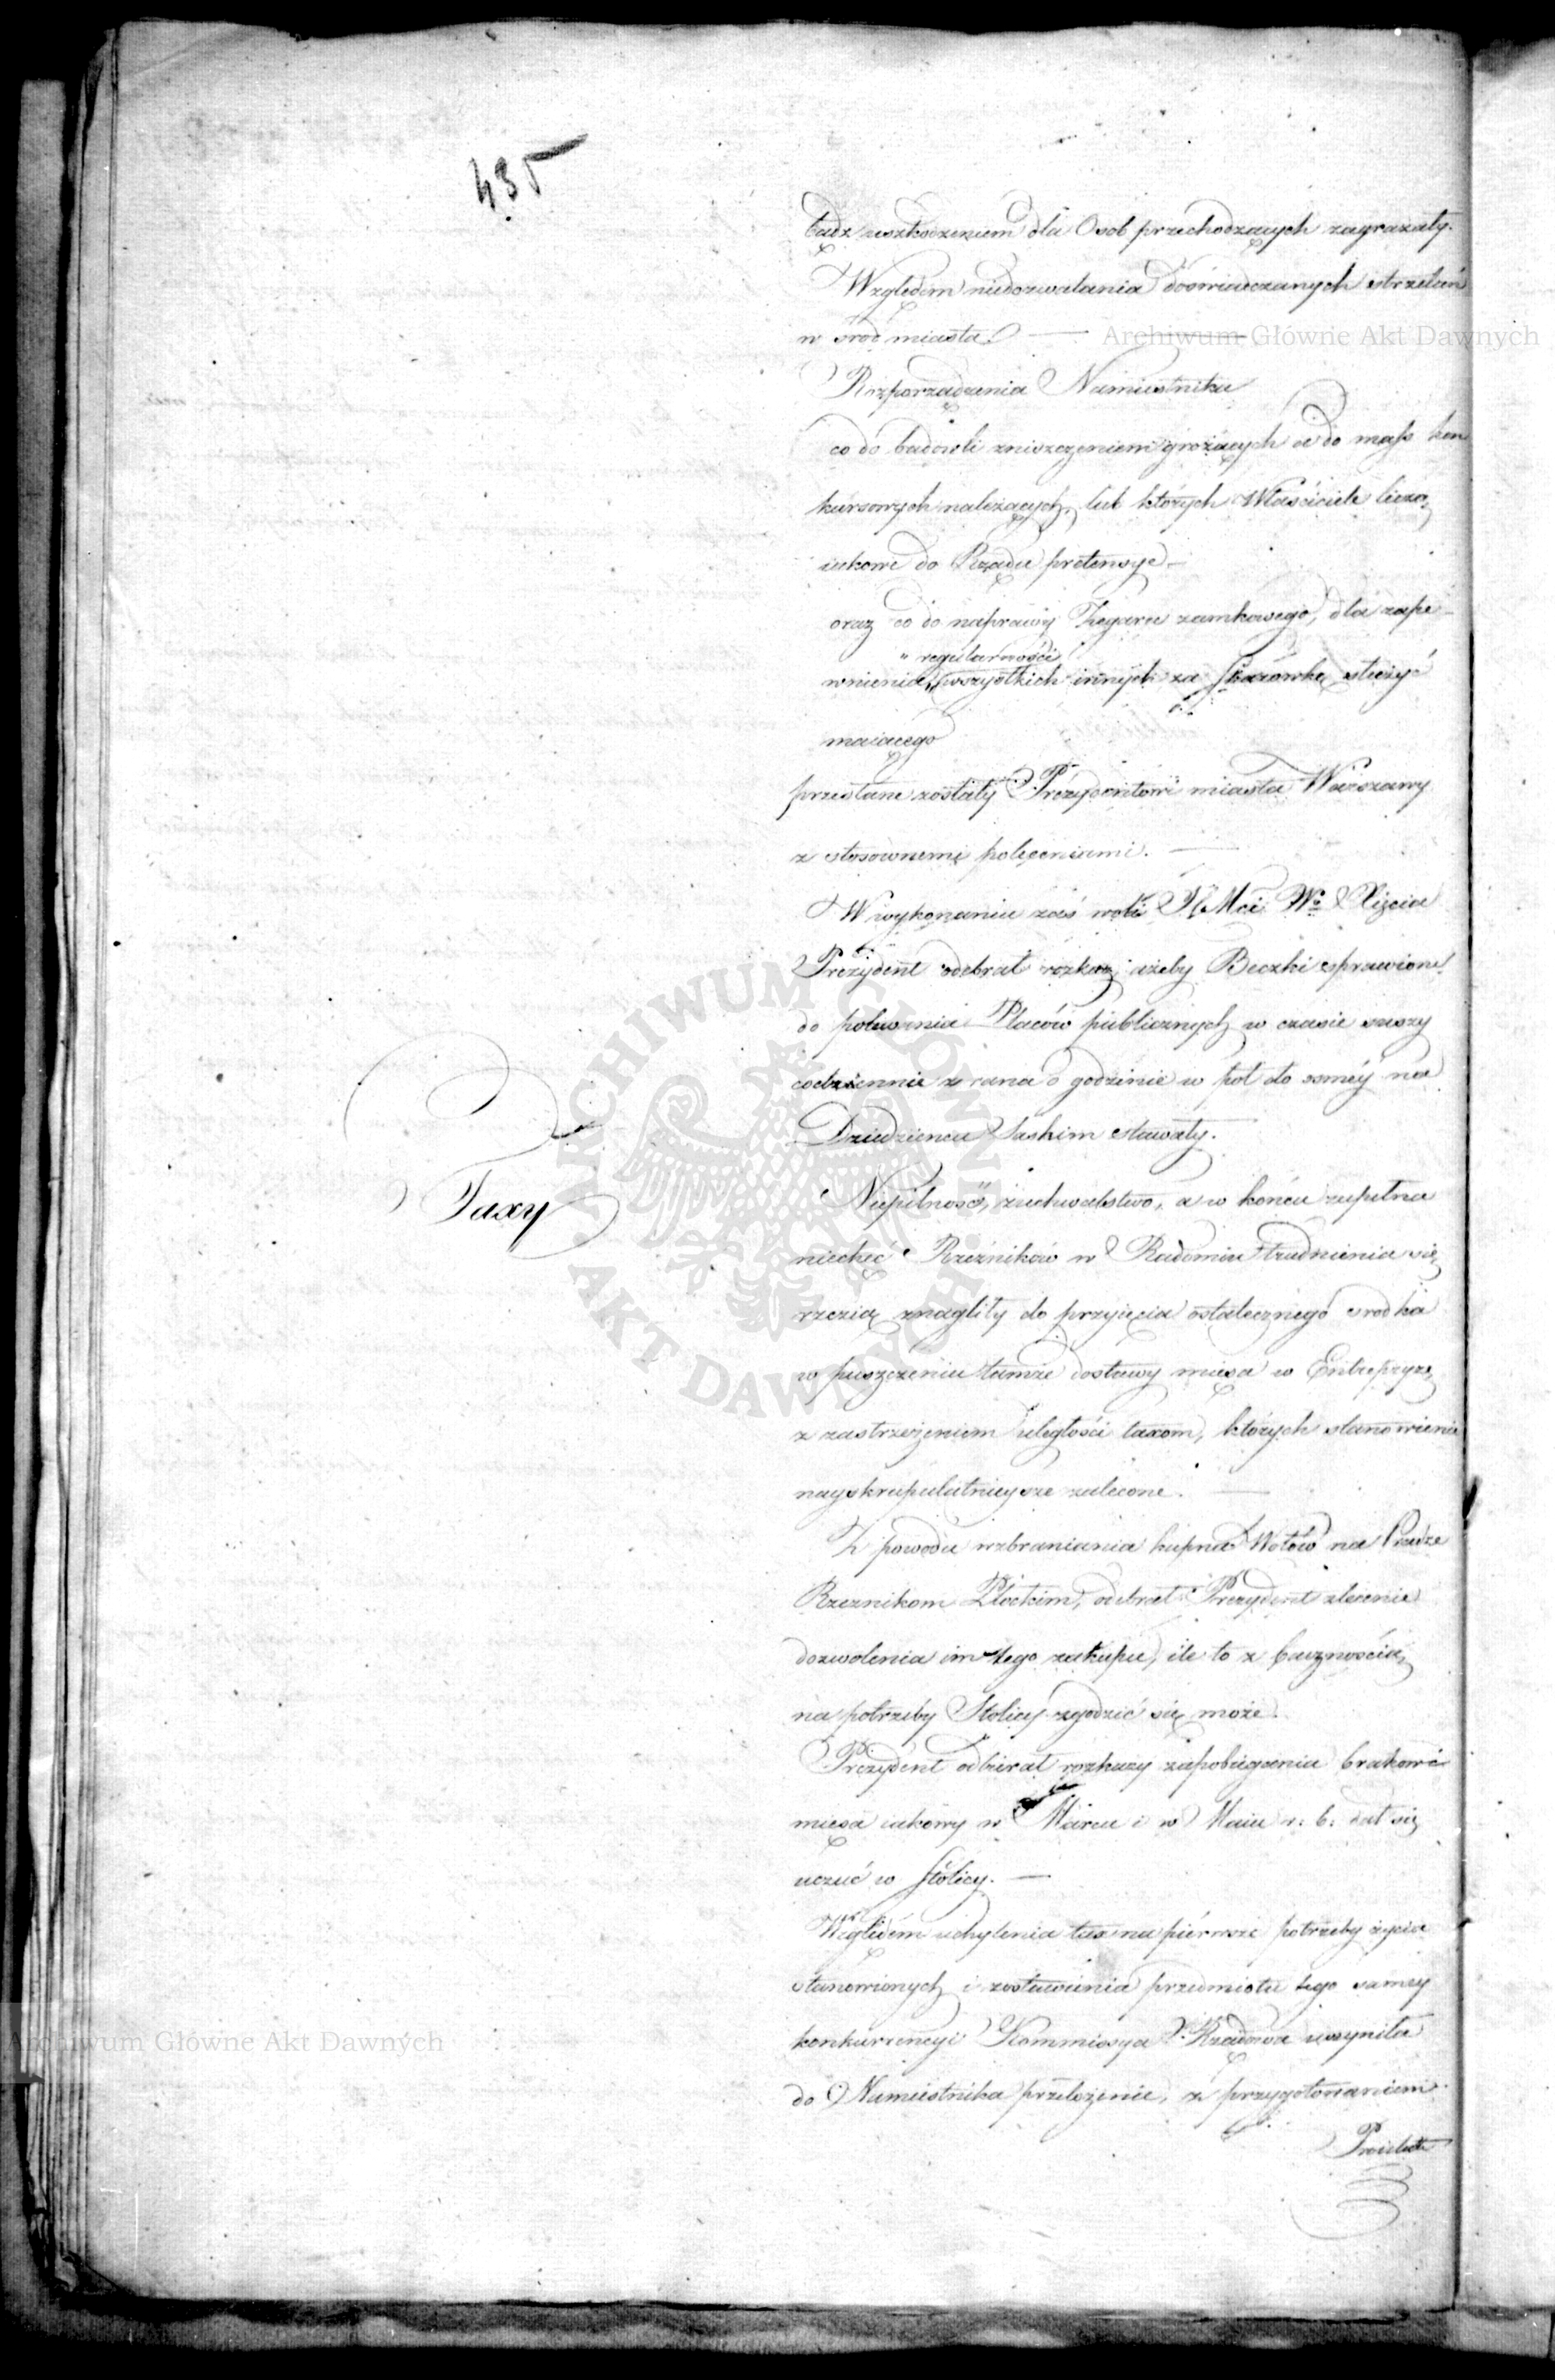 435
bądz uszkodzeniem dla Osob przechodzących zagrażały.
Względem niedozwalania doświadczanych strzelań
w środ miasta. —
Rozporządzenia Namiestnika
co do budowli zniszczeniem grożących a do mass kon
kursowych należących, lub których Właściciele liczą
iakowe do Rządu pretensye —
oraz co do naprawy Zegaru zamkowego, dla zape-
" regularności
wnienia " wszystkich innych za skazówkę służyć
maiącego
przesłane zostały Prezydentowi miasta Warszawy
z stosownemi poleceniami. —
W wykonaniu zaś woli JC Mci Wo Xięcia
Prezydent odebrał rozkaz ażeby Beczki sprawione
do polewania Placów publicznych w czasie suszy
codziennie z rana o godzinie w pół do osméy na
Dziedzieńcu Saskim stawały.
Taxy
Niepilność, zuchwalstwo, a w końcu zupełna
niechęć Rzeźników w Radomiu trudnienia się
rzezią znagliły do przyięcia ostatecznego srodka
w puszczeniu tamże dostawy mięsa w Entrepryzę
z zastrzeżeniem uległości taxom, których stanowienie
nayskrupulatnieysze zalecone. —
Z powodu wzbraniania kupna Wołów na Pradze
Rzeznikom Płockim, odebrał Prezydent zlecenie
dozwolenia im tego zakupu, ile to z bacznością
na potrzeby Stolicy zgodzić się może.
Prezydent odbierał rozkazy zapobiegania brakowi
mięsa iakowy w Marcu i w Maiu r: b: dał się
uczuć w stolicy. —
Względem uchylenia tax na piérwsze potrzeby życia
stanowionych i zostawienia przedmiotu tego samey
konkurrencyi Kommissya Rządowa uczyniła
do Namiestnika przełożenie, z przygotowaniem
Proiektu
Archiwum Główne Akt Dawnych
Archiwum Główne Akt Dawnych
ARCHIWUM GŁÓWNE
AKT DAWNYCH